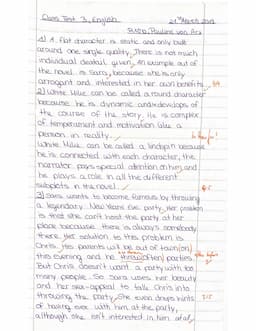 Class Test 3, English 21st March 2012
Pauline von Arx
1) A flat character is static and only built
around one single quality. There is not much
individual deatail given. An example out of
the novel is Sara, because she is only
arrogant and interested in her own benefits.
2) White Mike can be called a round character
because he is dynamic and develops of
the course of the story. He is complex
of temperament and motivation like a
person in reality.
White Mike can be called a lindgpin because
he is connected with each character, the
narrator pays special attention on him and
he plays a role in all the different
subplots in the novel.
3) Sara wants to become famous by throwing
a legendary New Years Eve party. Her problem
is that she can't host the party at her
place because there is always somebody
there. Her solution to this problem is
Chris. His parents will be out of town (on)
this evening and he throws often parties.
But Chris doesn't want a party with too
many people. So Sara uses her beauty
and her sex-appeal to talk Chris into
throwing the party. She even drops hints
of having sex with him at the party,
although she isn't interested in him at all.